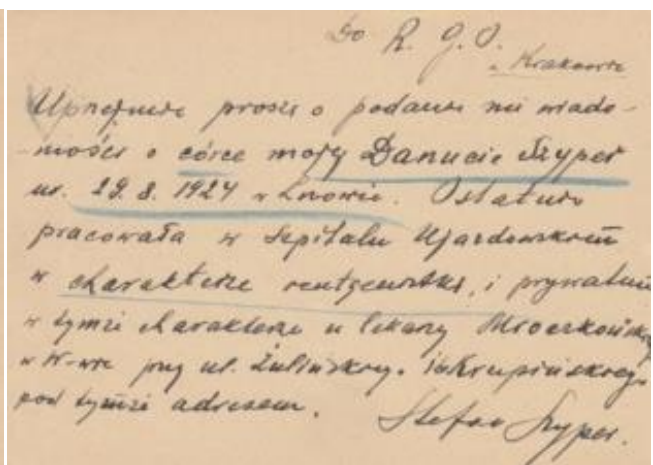 Do R. G. O.
w Krakowie
Uprzejmie proszę o podanie mi wiado-
mości o córce mojej Danucie Szyper
ur. 29. 8. 1924 w Lwowie. Ostatnio
pracowała w Szpitalu Ujazdowskim
w charakterze rentgenistki, i prywatnie
w tymże charakterze u lekarzy
w W-wie przy ul. Żulińskiego i Krupińskiego
pod tymże adresem.
Stefan Szyper.